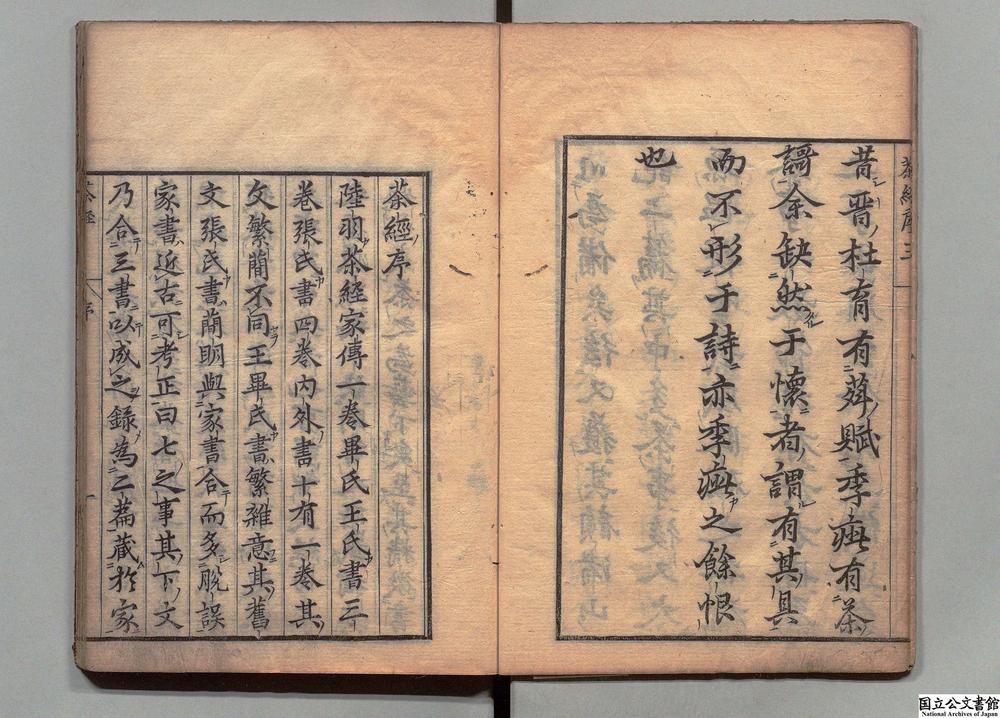 茶經序 三
昔晋杜育有荈賦季疵有茶
謌余缺然于懷者謂有其具
而不形于詩亦季疵之餘恨
也
茶經序
陸羽茶經家傳一卷畢氏王氏書三
卷張氏書四卷内外書十有一卷其
文繁簡不同王畢氏書繁雜意其舊
文張氏書簡明與家書合而多脫誤
家書近古可考正曰七之事其下文
乃合三書以成之錄為二篇藏於家
茶經
序
国立公文書館
National Archives of Japan